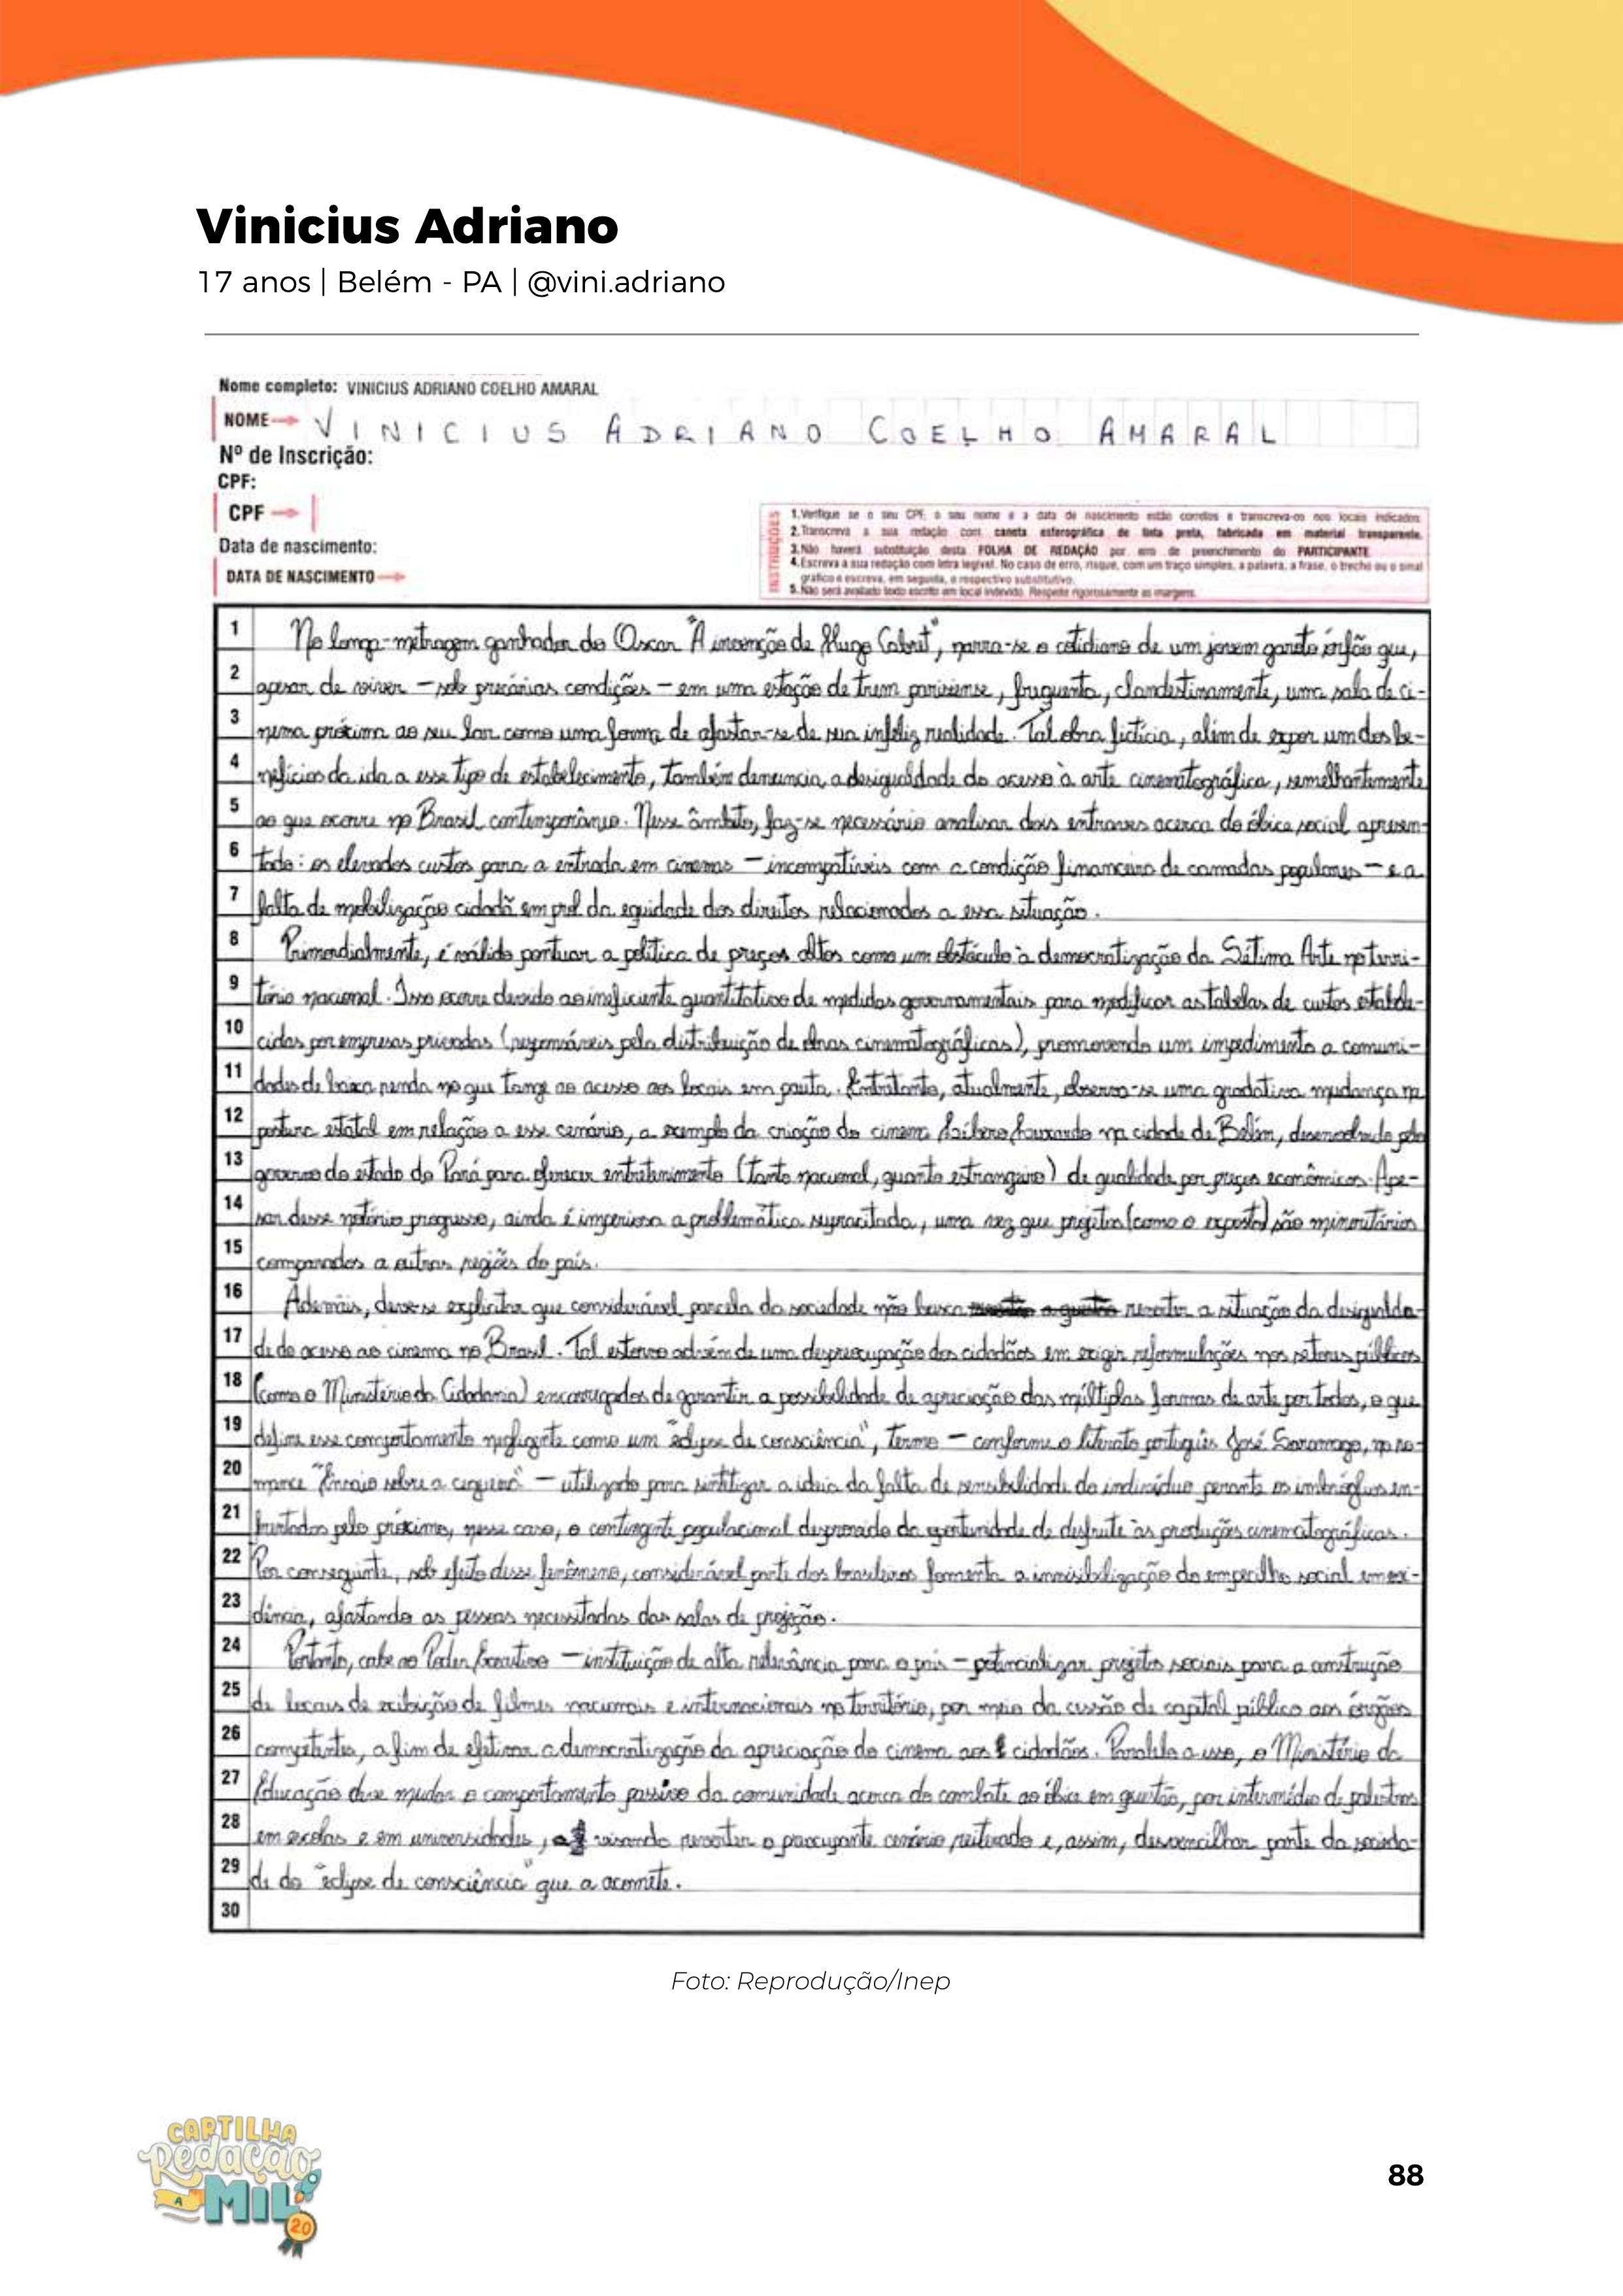 Vinicius Adriano
17 anos | Belém - PA | @vini.adriano
Nome completo: VINICIUS ADRIANO COELHO AMARAL
NOME VINICIUS ADRIANO COELHO AMARAL
Nº de Inscrição:
CPF:
CPF
Data de nascimento:
DATA DE NASCIMENTO
INSTRUÇÕES
1. Verifique se o seu CPF, o seu nome e a data de nascimento estão corretos e transcreva-os nos locais indicados.
2. Transcreva a sua redação com caneta esferográfica de tinta preta, fabricada em material transparente.
3. Não haverá substituição desta FOLHA DE REDAÇÃO por erro de preenchimento do PARTICIPANTE
4. Escreva a sua redação com letra legível. No caso de erro, risque, com um traço simples, a palavra, a frase, o trecho ou o sinal
gráfico e escreva, em seguida, o respectivo substitutivo.
5. Não será avaliado texto escrito em local indevido. Respeite rigorosamente as margens.
1 No longa-metragem ganhador do Oscar "A invenção de Hugo Cabret", narra-se o cotidiano de um jovem garoto órfão que,
2 apesar de viver – sob precárias condições – em uma estação de trem parisiense, frequenta, clandestinamente, uma sala de ci-
3 nema próxima ao seu lar como uma forma de afastar-se de sua infeliz realidade. Tal obra fictícia, além de expor um dos be-
4 nefícios da ida a esse tipo de estabelecimento, também denuncia a desigualdade do acesso à arte cinematográfica, semelhantemente
5 ao que ocorre no Brasil contemporâneo. Nesse âmbito, faz-se necessário analisar dois entraves acerca do óbice social apresen-
6 tado: os elevados custos para a entrada em cinemas – incompatíveis com a condição financeira de camadas populares – e a
7 falta de mobilização cidadã em prol da equidade dos direitos relacionados a essa situação.
8 Primordialmente, é válido pontuar a política de preços altos como um obstáculo à democratização da Sétima Arte no terri-
9 tório nacional. Isso ocorre devido ao ineficiente quantitativo de medidas governamentais para modificar as tabelas de custos estabele-
10 cidas por empresas privadas (responsáveis pela distribuição de obras cinematográficas), promovendo um impedimento a comuni-
11 dades de baixa renda no que tange ao acesso aos locais em pauta. Entretanto, atualmente, observa-se uma gradativa mudança na
12 postura estatal em relação a esse cenário, a exemplo da criação do cinema Líbero Luxardo na cidade de Belém, desenvolvido pelo
13 governo do estado do Pará para oferecer entretenimento (tanto nacional, quanto estrangeiro) de qualidade por preços econômicos. Ape-
14 sar desse notório progresso, ainda é imperiosa a problemática supracitada, uma vez que projetos (como o exposto) são minoritários
15 comparados a outras regiões do país.
16 Ademais, deve-se explicitar que considerável parcela da sociedade não busca reverter a situação da desigualda-
17 de do acesso ao cinema no Brasil. Tal estorvo advém de uma despreocupação dos cidadãos em exigir reformulações nos setores públicos
18 (como o Ministério da Cidadania) encarregados de garantir a possibilidade de apreciação das múltiplas formas de arte por todos, o que
19 define esse comportamento negligente como um "eclipse de consciência", termo – conforme o literato português José Saramago, no ro-
20 mance "Ensaio sobre a cegueira" – utilizado para sintetizar a ideia da falta de sensibilidade do indivíduo perante os imbróglios en-
21 frentados pelo próximo, nesse caso, o contingente populacional desprovido da oportunidade de desfrute às produções cinematográficas.
22 Por conseguinte, sob efeito desse fenômeno, considerável parte dos brasileiros fomenta a invisibilização do empecilho social em evi-
23 dência, afastando as pessoas necessitadas das salas de projeção.
24 Portanto, cabe ao Poder Executivo – instituição de alta relevância para o país – potencializar projetos sociais para a construção
25 de locais de exibição de filmes nacionais e internacionais no território, por meio da cessão de capital público aos órgãos
26 competentes, a fim de efetivar a democratização da apreciação do cinema aos cidadãos. Paralelo a isso, o Ministério da
27 Educação deve mudar o comportamento passivo da comunidade acerca do combate ao óbice em questão, por intermédio de palestras
28 em escolas e em universidades, visando reverter o preocupante cenário reiterado e, assim, desvencilhar parte da socieda-
29 de do "eclipse de consciência" que a acomete.
30
Foto: Reprodução/Inep
CARTILHA
Redação
A
MIL
2.0
88